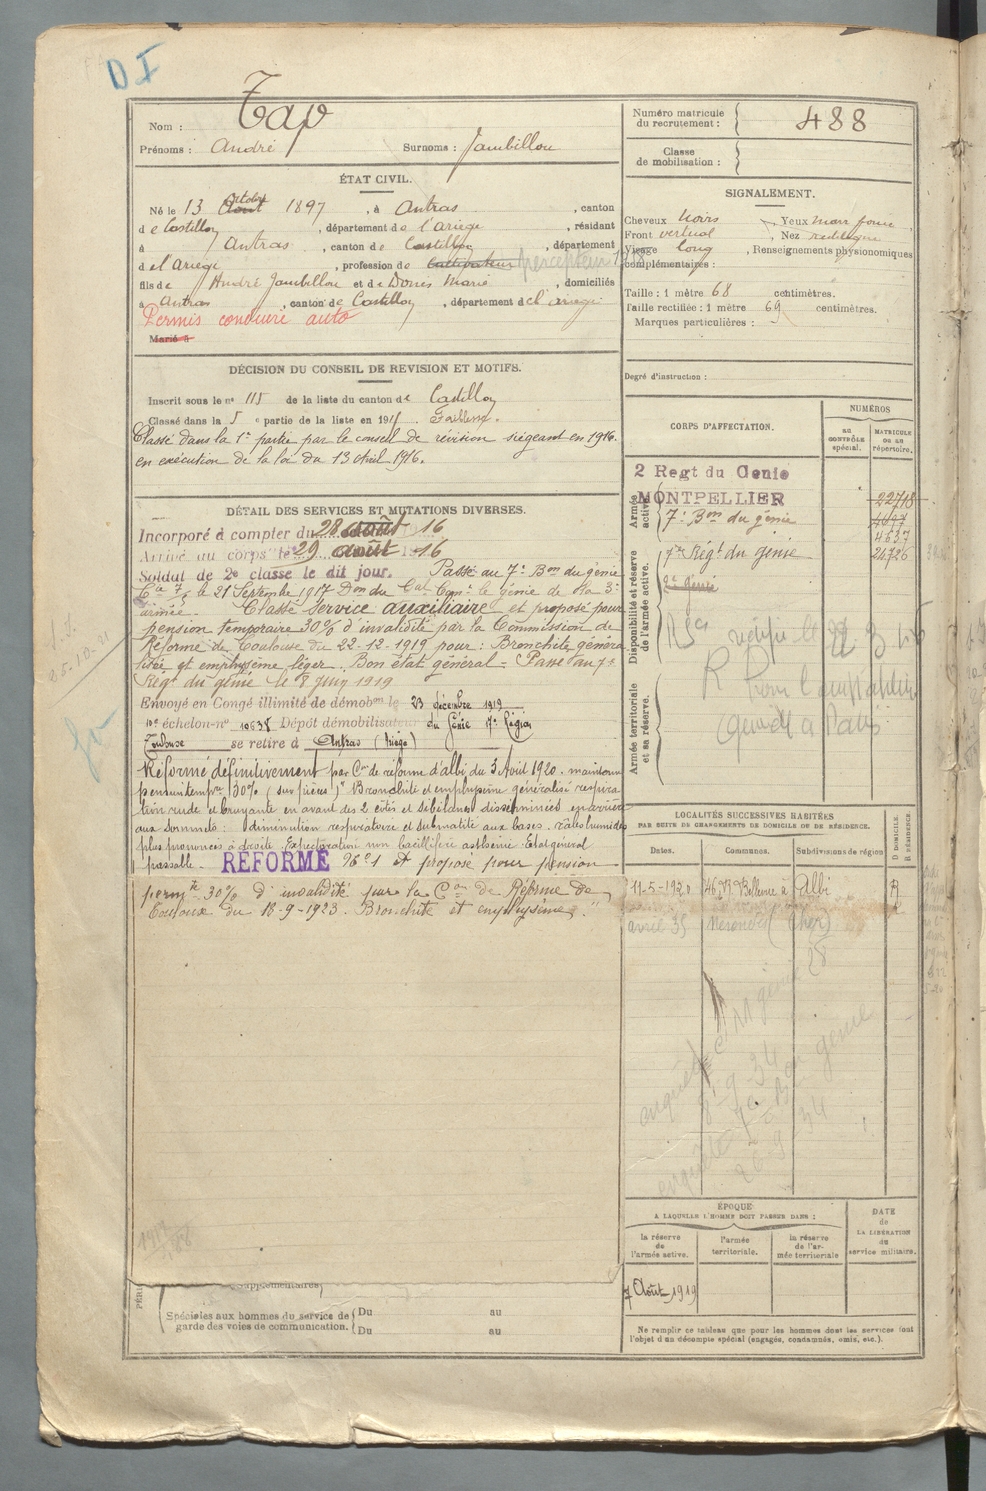 D I
Nom : Tap
Prénoms : André Surnoms : Jambillou
Numéro matricule du recrutement : 488
Classe de mobilisation :
ÉTAT CIVIL.
Né le 13 Août Octobre 1897, à Antras, canton
de Castillon, département de l'Ariège, résidant
à Antras, canton de Castillon, département
de l'Ariège, profession de Cultivateur percepteur
fils de André Jambillou et de Dones Marie, domiciliés
à Antras, canton de Castillon, département de l'ariège
Permis conduire auto
Marié à
SIGNALEMENT.
Cheveux noirs Yeux marr foncé
Front vertical Nez rectiligne
Visage long, Renseignements physionomiques
complémentaires :
Taille : 1 mètre 68 centimètres.
Taille rectifiée : 1 mètre 69 centimètres.
Marques particulières :
Degré d'instruction :
DÉCISION DU CONSEIL DE REVISION ET MOTIFS.
Inscrit sous le n° 115 de la liste du canton de Castillon
Classé dans la 5e partie de la liste en 191 Faiblesse.
Classé dans la 1e partie par le conseil de révision siégeant en 1916.
en exécution de la loi du 13 Avril 1916.
DÉTAIL DES SERVICES ET MUTATIONS DIVERSES.
Incorporé à compter du 28 août 1916
Arrivé au corps le 29 août 1916
Soldat de 2e classe le dit jour. Passé au 7e Bon du génie
Cie 7/5 le 21 Septembre 1917 Don du Gal Comt le génie de la 3e
armée. Classé Service auxiliaire et proposé pour
pension temporaire 30% d'invalidité par la Commission de
Réforme de Toulouse du 22-12-1919 pour : Bronchite généra
lisée et emphysème léger. Bon état général - Passé au 7e
Régt du génie le 8 juin 1919
Envoyé en Congé illimité de démobon le 23 décembre 1919
10e échelon - no 10638 Dépôt démobilisateur du Génie 17e Région
Toulouse se retire à Antras (Ariège)
Réformé définitivement par Con de réforme d'albi du 3 Avril 1920. maintenu
pension tempre 30% (sur pièces) "Bronchite et emphysème généralisé respira
tion rude et bruyante en avant des 2 côtés et sibilances disséminées en arrière
aux sommets : diminution respiratoire et submatité aux bases. râles humides
plus prononcés à droite. Expectoration non bacillifère asthénie. Etat général
passable. RÉFORMÉ No 1 et proposé pour pension
permte 30% d'invalidité par la Con de Réforme de
Toulouse du 18-9-1923. Bronchite et emphysème."
CORPS D'AFFECTATION.
NUMÉROS
AU CONTRÔLE spécial.
MATRICULE ou au répertoire.
Armée active.
2 Regt du Genie
MONTPELLIER 22718
7e Bon du génie 4697
4637
Disponibilité et réserve de l'armée active.
7me Régt du génie 24726
2e Génie
Armée territoriale et sa réserve.
LOCALITÉS SUCCESSIVES HABITÉES
PAR SUITE DE CHANGEMENTS DE DOMICILE OU DE RÉSIDENCE.
Dates. Communes. Subdivisions de région
D DOMICILE. R RÉSIDENCE.
11-5-1920 46 R Bellevue à Albi R
avril 35 (Cher)
enquête
8-9-34
enquête 7e Bon génie
20-9-34
ÉPOQUE
A LAQUELLE L'HOMME DOIT PASSER DANS :
la réserve de l'armée active.
l'armée territoriale.
la réserve de l'armée territoriale
DATE de LA LIBÉRATION du service militaire.
7 Août 1919
Supplémentaires
Spéciales aux hommes du service de garde des voies de communication.
Du au
Du au
Ne remplir ce tableau que pour les hommes dont les services font
l'objet d'un décompte spécial (engagés, condamnés, omis, etc.).